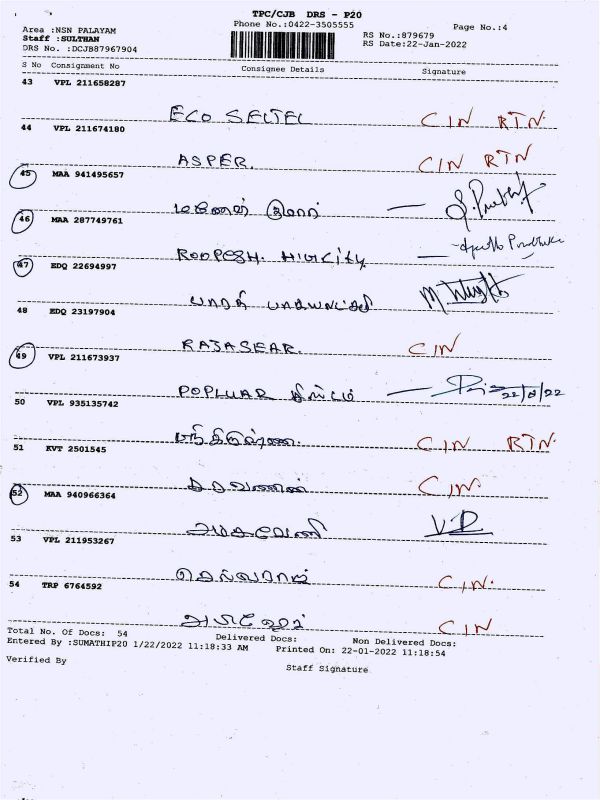 TPC/CJB DRS - P20
Phone No.:0422-3505555
Page No.:4
Area :NSN PALAYAM
Staff :SULTHAN
DRS No. :DCJB87967904
RS No.:879679
RS Date:22-Jan-2022
S No Consignment No Consignee Details Signature
43 VPL 211658287
ECO SELTEL CIN RTN
44 VPL 211674180
ASPER. CIN RTN
45 MAA 941495657
46 MAA 287749761
ROOPESH. Hi
47 EDQ 22694997
பாரதி
48 EDQ 23197904
RAJASEAR. CIN
49 VPL 211673937
POPLUAR 22/01/22
50 VPL 935135742
CIN RTN
51 KVT 2501545
சரவணன் CIN
52 MAA 940966364
அமுதவேணி
53 VPL 211953267
செல்வராஜ் CIN
54 TRP 6764592
CIN
Total No. Of Docs: 54 Delivered Docs: Non Delivered Docs:
Entered By :SUMATHIP20 1/22/2022 11:18:33 AM Printed On: 22-01-2022 11:18:54
Verified By Staff Signature